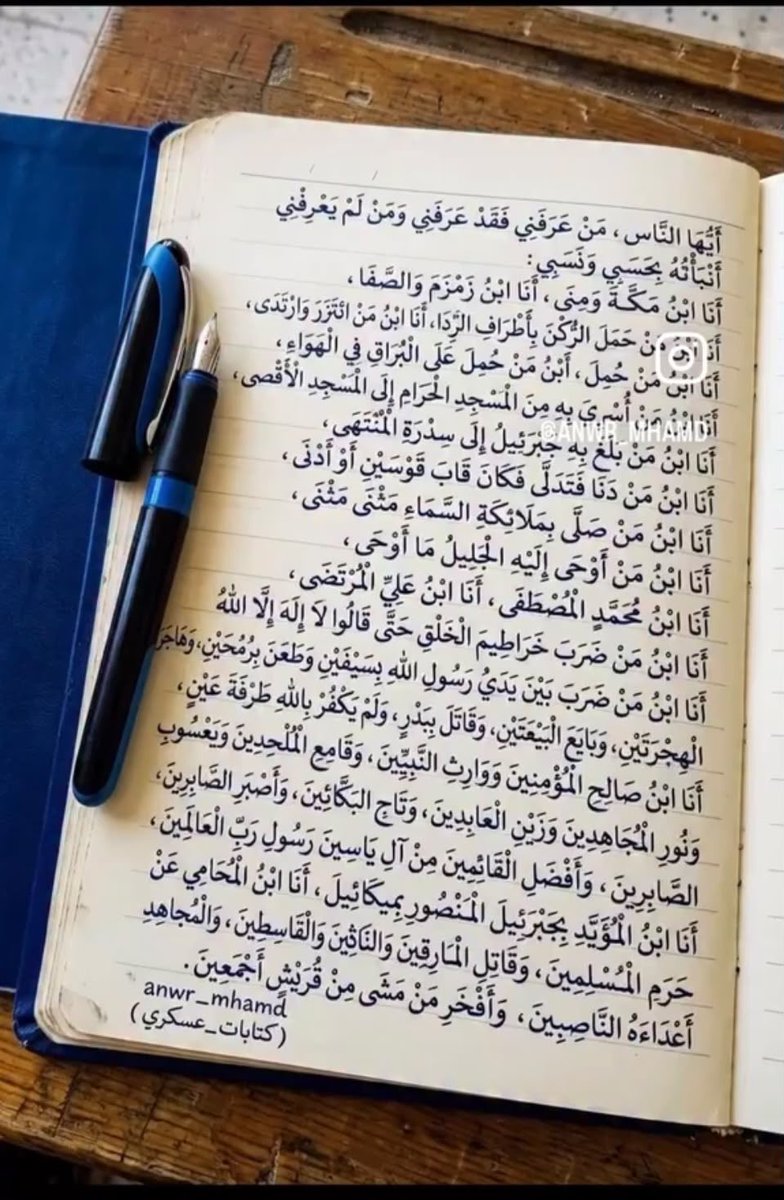 أَيُّهَا النَّاس ، مَنْ عَرَفَنِي فَقَدْ عَرَفَنِي وَمَنْ لَمْ يَعْرِفْنِي
أَنْبَأْتُهُ بِحَسَبِي وَنَسَبِي:
أَنَا ابْنُ مَكَّةَ وَمِنَى ، أَنَا ابْنُ زَمْزَمَ وَالصَّفَا ،
أَنَا ابْنُ مَنْ حَمَلَ الرُّكْنَ بِأَطْرَافِ الرِّدَا، أَنَا ابْنُ مَنْ ائتَزَرَ وَارْتَدَى،
أَنَا ابْنُ مَنْ حُمِلَ ، أَبْنُ مَنْ حُمِلَ عَلَى الْبُرَاقِ فِي الْهَوَاءِ ،
أَنَا ابْنُ مَنْ أُسْرِيَ بِهِ مِنَ الْمَسْجِدِ الْحَرَامِ إِلَى الْمَسْجِدِ الْأَقْصى ،
@ANWR_MHAMD
أَنَا ابْنُ مَنْ بَلَغَ بِهِ جَبْرَئِيلُ إِلَى سِدْرَةِ الْمُنْتَهَى،
أَنَا ابْنُ مَنْ دَنَا فَتَدَلَّى فَكَانَ قَابَ قَوْسَيْنِ أَوْ أَدْنَى ،
أَنَا ابْنُ مَنْ صَلَّى بِمَلَائِكَةِ السَّمَاءِ مَثْنَى مَثْنَى ،
أَنَا ابْنُ مَنْ أَوْحَى إِلَيْهِ الْجَلِيلُ مَا أَوْحَى ،
أَنَا ابْنُ مُحَمَّدٍ الْمُصْطَفَى ، أَنَا ابْنُ عَلِيٍّ الْمُرْتَضَى ،
أَنَا ابْنُ مَنْ ضَرَبَ خَرَاطِيمَ الْخَلْقِ حَتَّى قَالُوا لَا إِلَهَ إِلَّا اللهُ
أَنَا ابْنُ مَنْ ضَرَبَ بَيْنَ يَدَيْ رَسُولِ اللهِ بِسَيْفَيْنِ وَطَعَنَ بِرُمْحَيْنِ، وَهَاجَرَ
الْهِجْرَتَيْنِ، وَبَايَعَ الْبَيْعَتَيْنِ، وَقَاتَلَ بِبَدْرٍ، وَلَمْ يَكْفُرْ بِاللهِ طَرْفَةَ عَيْنٍ ،
أَنَا ابْنُ صَالِحِ الْمُؤْمِنِينَ وَوَارِثِ النَّبِيِّينَ ، وَقَامِعِ الْمُلْحِدِينَ وَيَعْسُوبِ
وَنُورِ الْمُجَاهِدِينَ وَزَيْنِ الْعَابِدِينَ ، وَتَاجِ البَكَّائِينَ ، وَأَصْبَرِ الصَّابِرِينَ،
الصَّابِرِينَ ، وَأَفْضَلِ الْقَائِمِينَ مِنْ آلِ يَاسِينَ رَسُولِ رَبِّ الْعَالَمِينَ ،
أَنَا ابْنُ الْمُؤَيَّدِ بِجَبْرَئِيلَ الْمَنْصُورِ بِمِيكَائِيلَ ، أَنَا ابْنُ الْمُحَامِي عَنْ
حَرَمِ الْمُسْلِمِينَ ، وَقَاتِلِ الْمَارِقِينَ وَالنَّاثِينَ وَالْقَاسِطِينَ ، وَالْمُجاهِدِ
أَعْدَاءَهُ النَّاصِبِينَ ، وَأَفْخَرِ مَنْ مَشَى مِنْ قُرَيْشٍ أَجْمَعِينَ .
anwr_mhamd
(كتابات_عسكري)